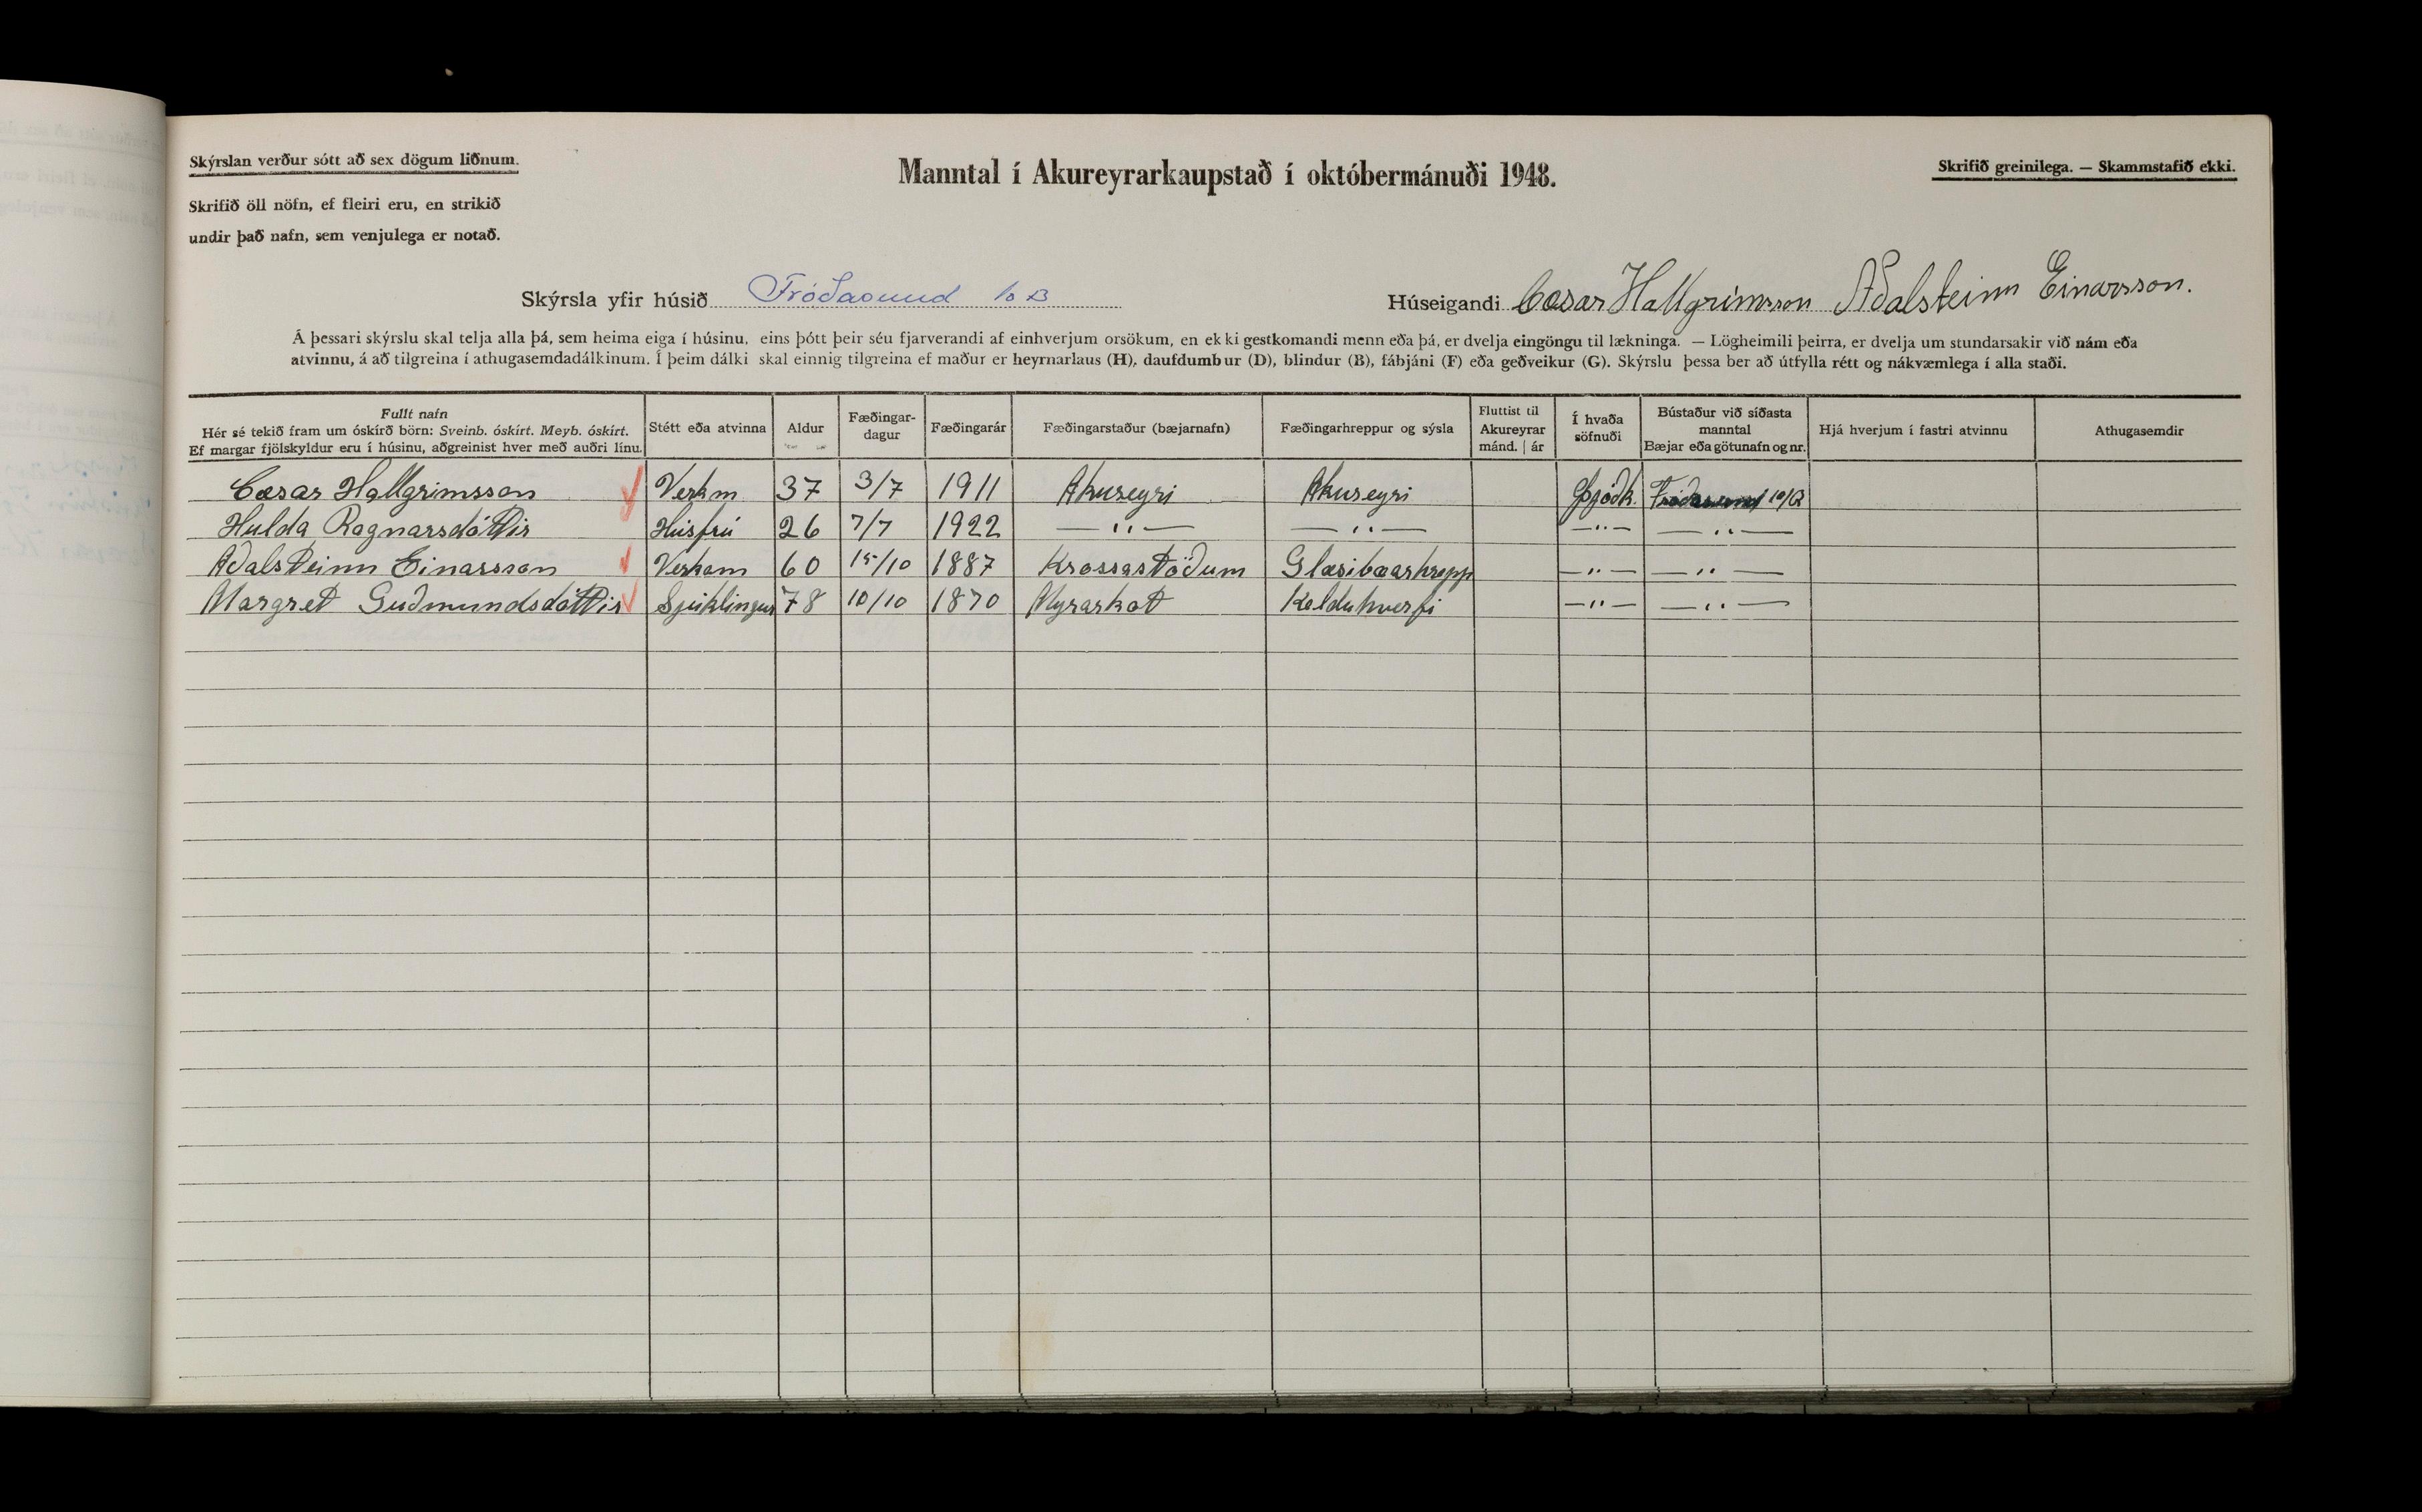 Skýrslan verður sótt að sex dögum liðnum.
Manntal í Akureyrarkaupstað í októbermánuði 1948.
Skrifið greinilega. — Skammstafið ekki.
Skrifið öll nöfn, ef fleiri eru, en strikið
undir það nafn, sem venjulega er notað.
Skýrsla yfir húsið Fróðasund 10 B
Húseigandi Cæsar Hallgrímsson Aðalsteinn Einarsson.
Á þessari skýrslu skal telja alla þá, sem heima eiga í húsinu, eins þótt þeir séu fjarverandi af einhverjum orsökum, en ekki gestkomandi menn eða þá, er dvelja eingöngu til lækninga. — Lögheimili þeirra, er dvelja um stundarsakir við nám eða
atvinnu, á að tilgreina í athugasemdadálkinum. Í þeim dálki skal einnig tilgreina ef maður er heyrnarlaus (H), daufdumbur (D), blindur (B), fábjáni (F) eða geðveikur (G). Skýrslu þessa ber að útfylla rétt og nákvæmlega í alla staði.
Fullt nafn
Hér sé tekið fram um óskírð börn: Sveinb. óskírt. Meyb. óskírt.
Ef margar fjölskyldur eru í húsinu, aðgreinist hver með auðri línu.
Stétt eða atvinna
Aldur
Fæðingar-
dagur
Fæðingarár
Fæðingarstaður (bæjarnafn)
Fæðingarhreppur og sýsla
Fluttist til
Akureyrar
mánd. | ár
Í hvaða
söfnuði
Bústaður við síðasta
manntal
Bæjar eða götunafn og nr.
Hjá hverjum í fastri atvinnu
Athugasemdir
Cæsar Hallgrimsson Verkm 37 3/7 1911 Akureyri Akureyri Þjóðk. Fróðasund 10/B
Hulda Ragnarsdóttir Húsfrú 26 7/7 1922 — " — — " — — " — — " —
Aðalsteinn Einarsson Verkam 60 15/10 1887 Krossastöðum Glæsibæarhrepp — " — — " —
Margret Guðmundsdóttir Sjúklingur 78 10/10 1870 Myrarkot Kelduhverfi — " — — " —